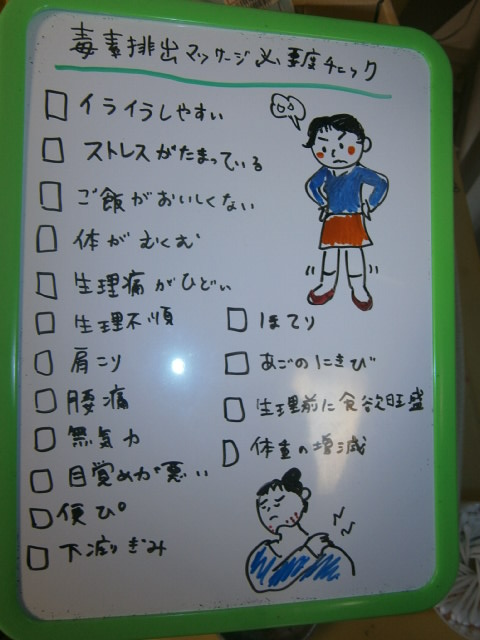 毒素排出マッサージ必要度チェック
イライラしやすい
ストレスがたまっている
ご飯がおいしくない
体がむくむ
生理痛がひどい
生理不順
肩こり
腰痛
無気力
目覚めが悪い
便ぴ
下痢ぎみ
ほてり
あごのにきび
生理前に食欲旺盛
体重の増減